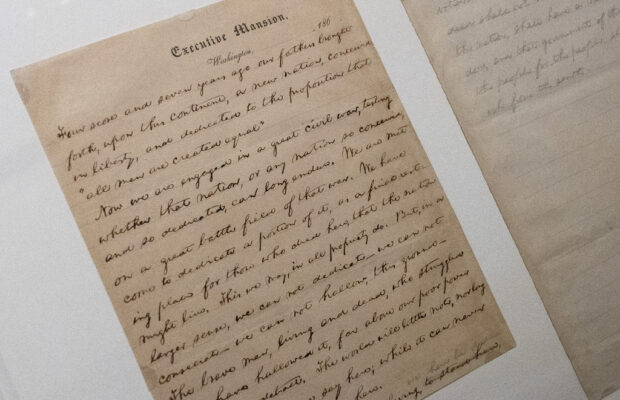 Executive Mansion,
Washington, 186
Four score and seven years ago our fathers brought
forth, upon this continent, a new nation, conceived
in liberty, and dedicated to the proposition that
"all men are created equal"
Now we are engaged in a great civil war, testing
whether that nation, or any nation so conceived,
and so dedicated, can long endure. We are met
on a great battle field of that war. We have
come to dedicate a portion of it, as a final rest-
ing place for those who died here, that the nation
might live. This we may, in all propriety do. But, in a
larger sense, we can not dedicate — we can not
consecrate — we can not hallow, this ground —
The brave men, living and dead, who struggled
have hallowed it, far above our poor power
detract. The world will little note, nor long
say here; while it can never
here.
to stand here,
shall
the nation, shall have
the people for the people